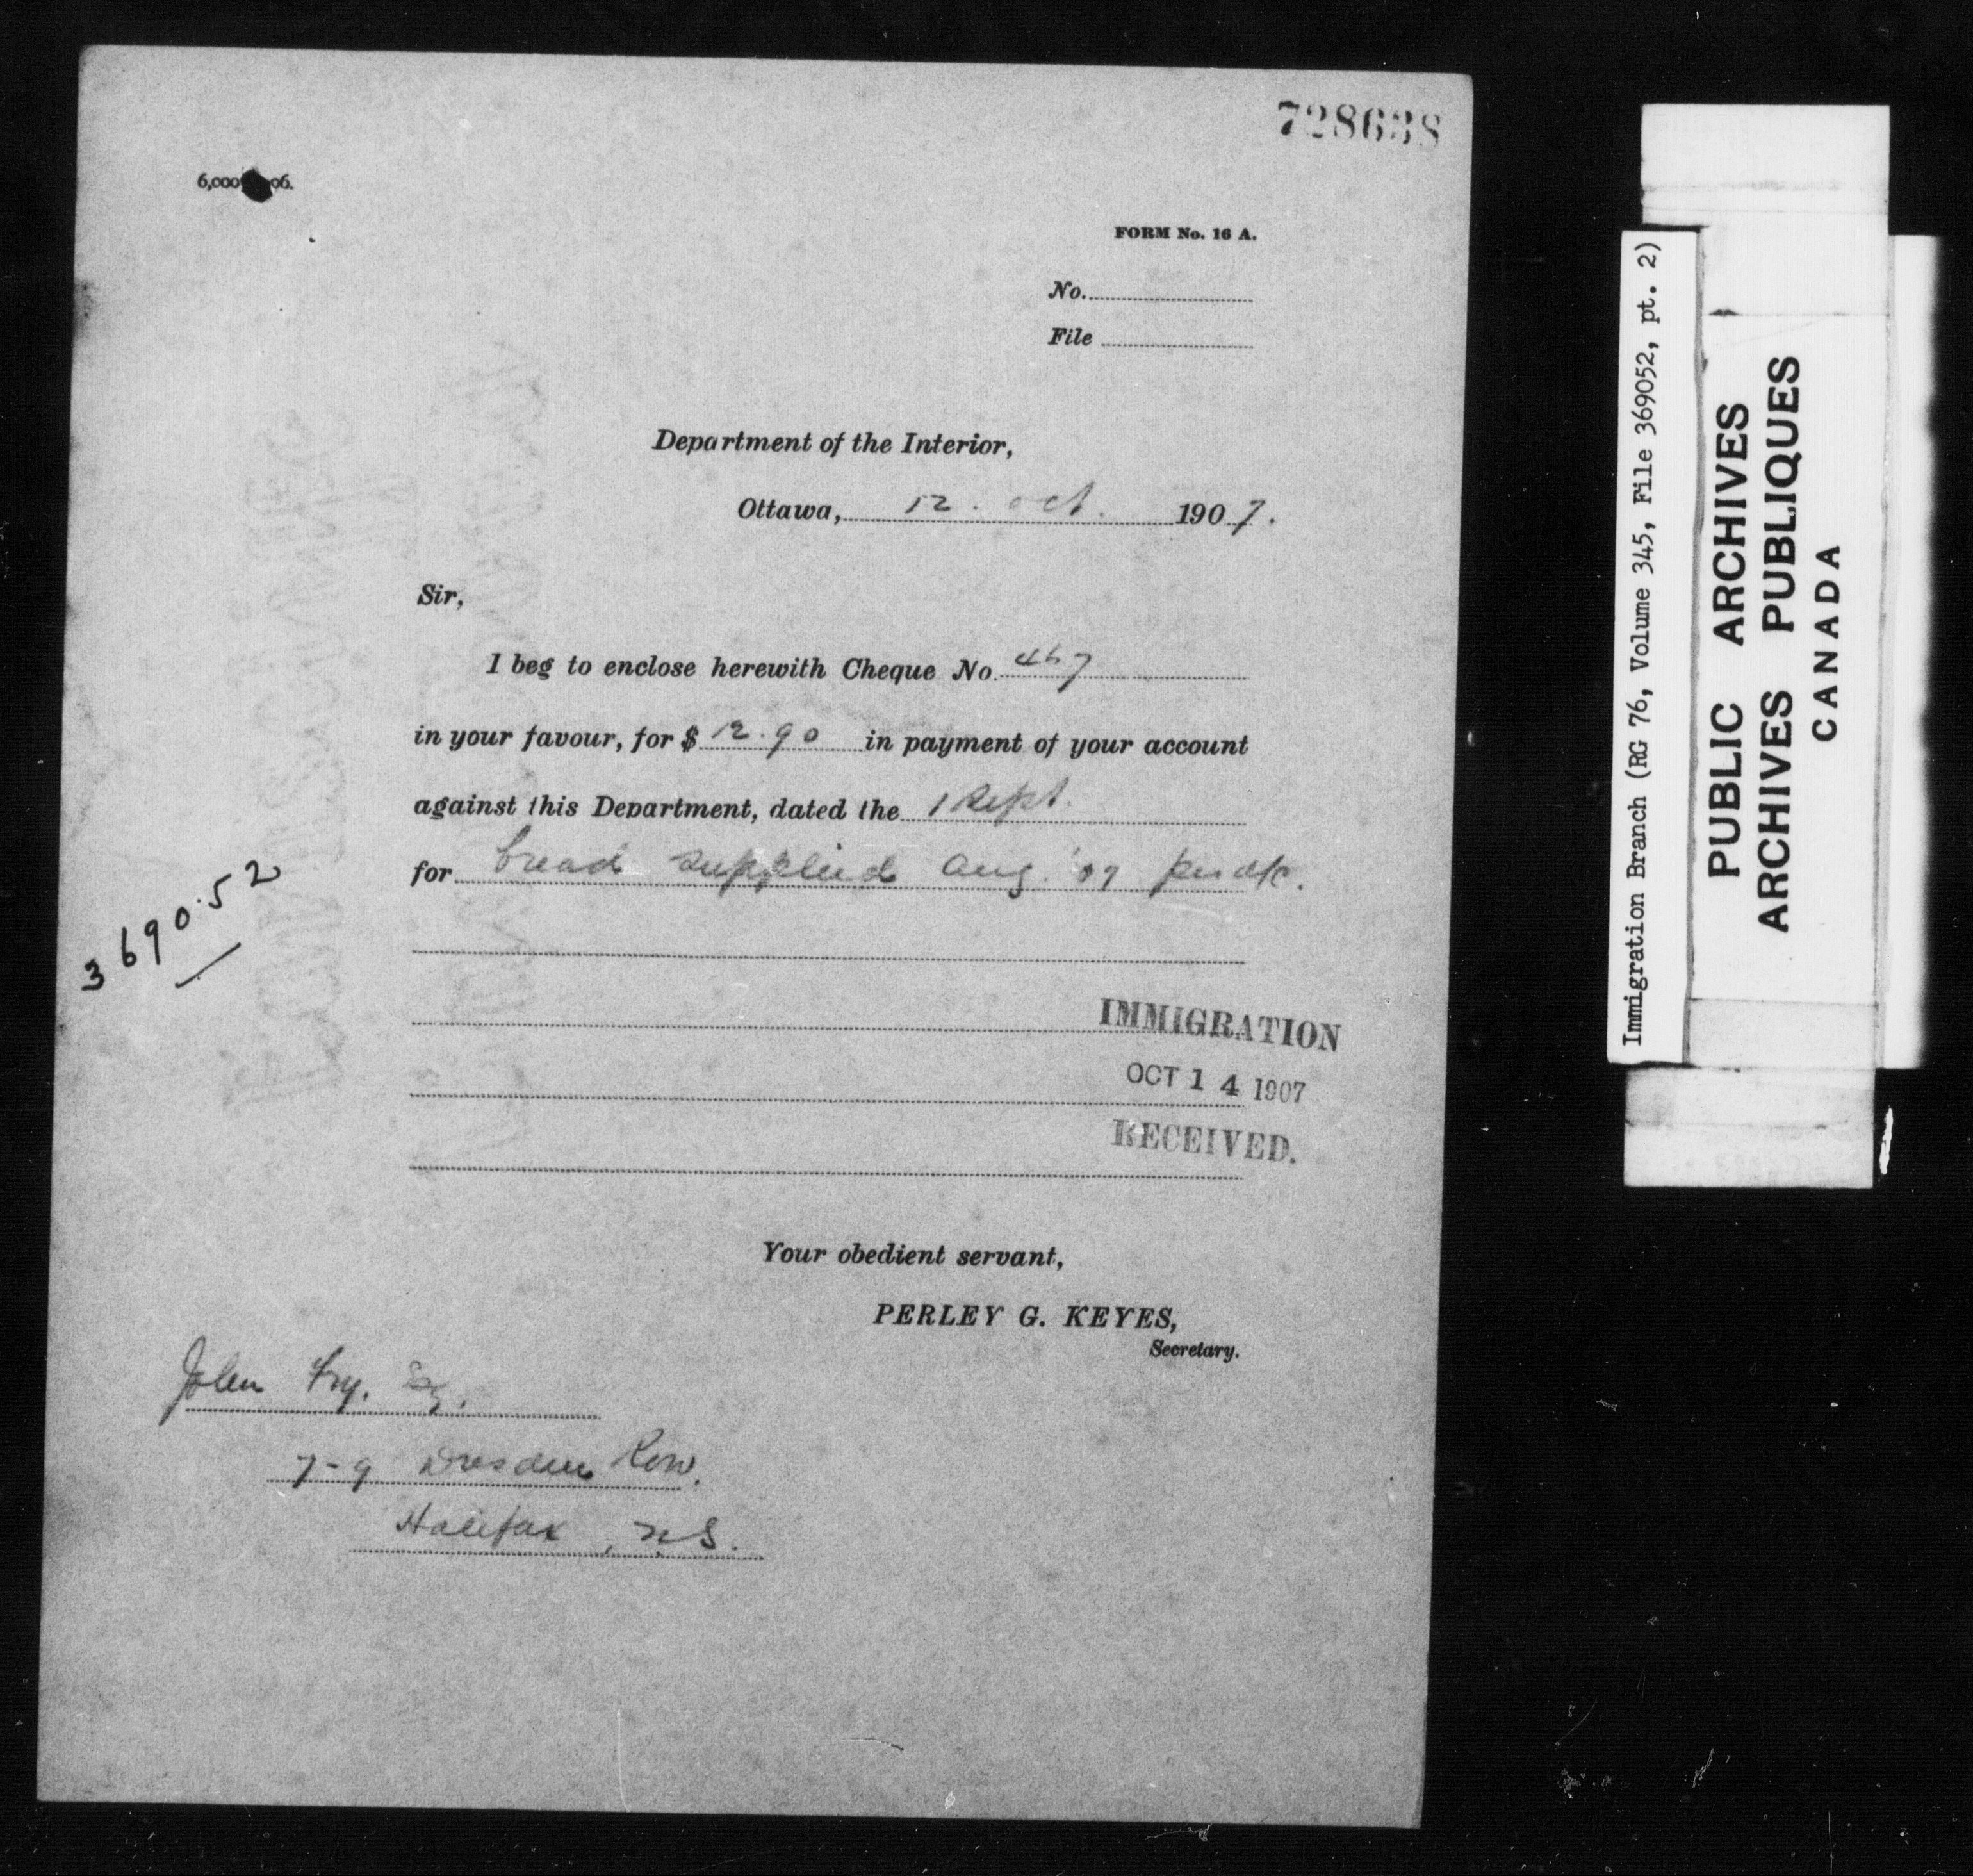 728638
6,000 06.
FORM No. 16 A.
No.
File
Department of the Interior,
Ottawa, 12. Oct. 1907.
Sir,
I beg to enclose herewith Cheque No. 467
in your favour, for $ 12.90 in payment of your account
against this Department, dated the 1 Sept.
for bread supplied Aug. '07 per a/c.
369052
IMMIGRATION
OCT 14 1907
RECEIVED.
Your obedient servant,
PERLEY G. KEYES,
Secretary.
John Fry. Esq.
7-9 Dresden Row.
Halifax, N.S.
Immigration Branch (RG 76, Volume 345, File 369052, pt. 2)
PUBLIC ARCHIVES
ARCHIVES PUBLIQUES
CANADA